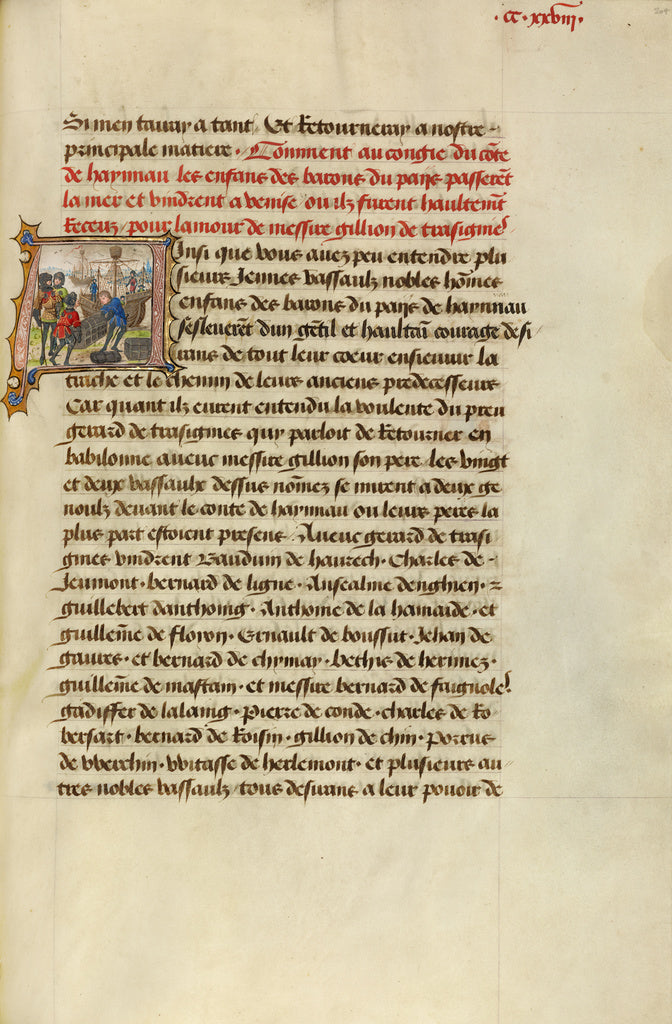 · cc · xxviii ·
Si men tairay a tant / Et Retourneray a nostre -
principale matiere · Comment au congie du cote
de haynnau les enfans des barons du pays passeret
la mer et vindrent a venise ou ilz furent haultemt
Receuz / pour lamour de messire gillion de trasignies
Ainsi que vous auez peu entendre plu
sieurs Jennes vassaulz nobles homes
enfans des barons du pays de haynnau
sesleueret dun getil et haultai courage desi
rans de tout leur coeur ensieuuir la
trache et le chemin de leurs anciens predecesseurs
Car quant ilz eurent entendu la voulente du preu
gerard de trasignies quy parloit de Retourner en
babilonne aueuc messire gillion son pere les vingt
et deux vassaulx dessus nomez se mirent a deux ge
noulz deuant le conte de haynnau ou leurs peres la
plus part estoient presens · Aueuc gerard de trasi
gnies vindrent Bauduin de haurech · Charles de -
Jeumont · bernard de ligne · Ansealme denghien · z
guillebert danthoing · Anthoine de la hamaide · et
guilleme de floyon · Ernault de boussut · Jehan de
gaures · et bernard de chymay · bethis de hermez ·
guilleme de mastain · et messire bernard de faignoles
gadiffer de lalaing · Pierre de conde · charles de Ro
bersart · bernard de Roisin · gillion de chin · Porrus
de vverchin · vvitasse de herlemont · et plusieurs au
tres nobles vassaulz / tous desirans a leur pouoir de